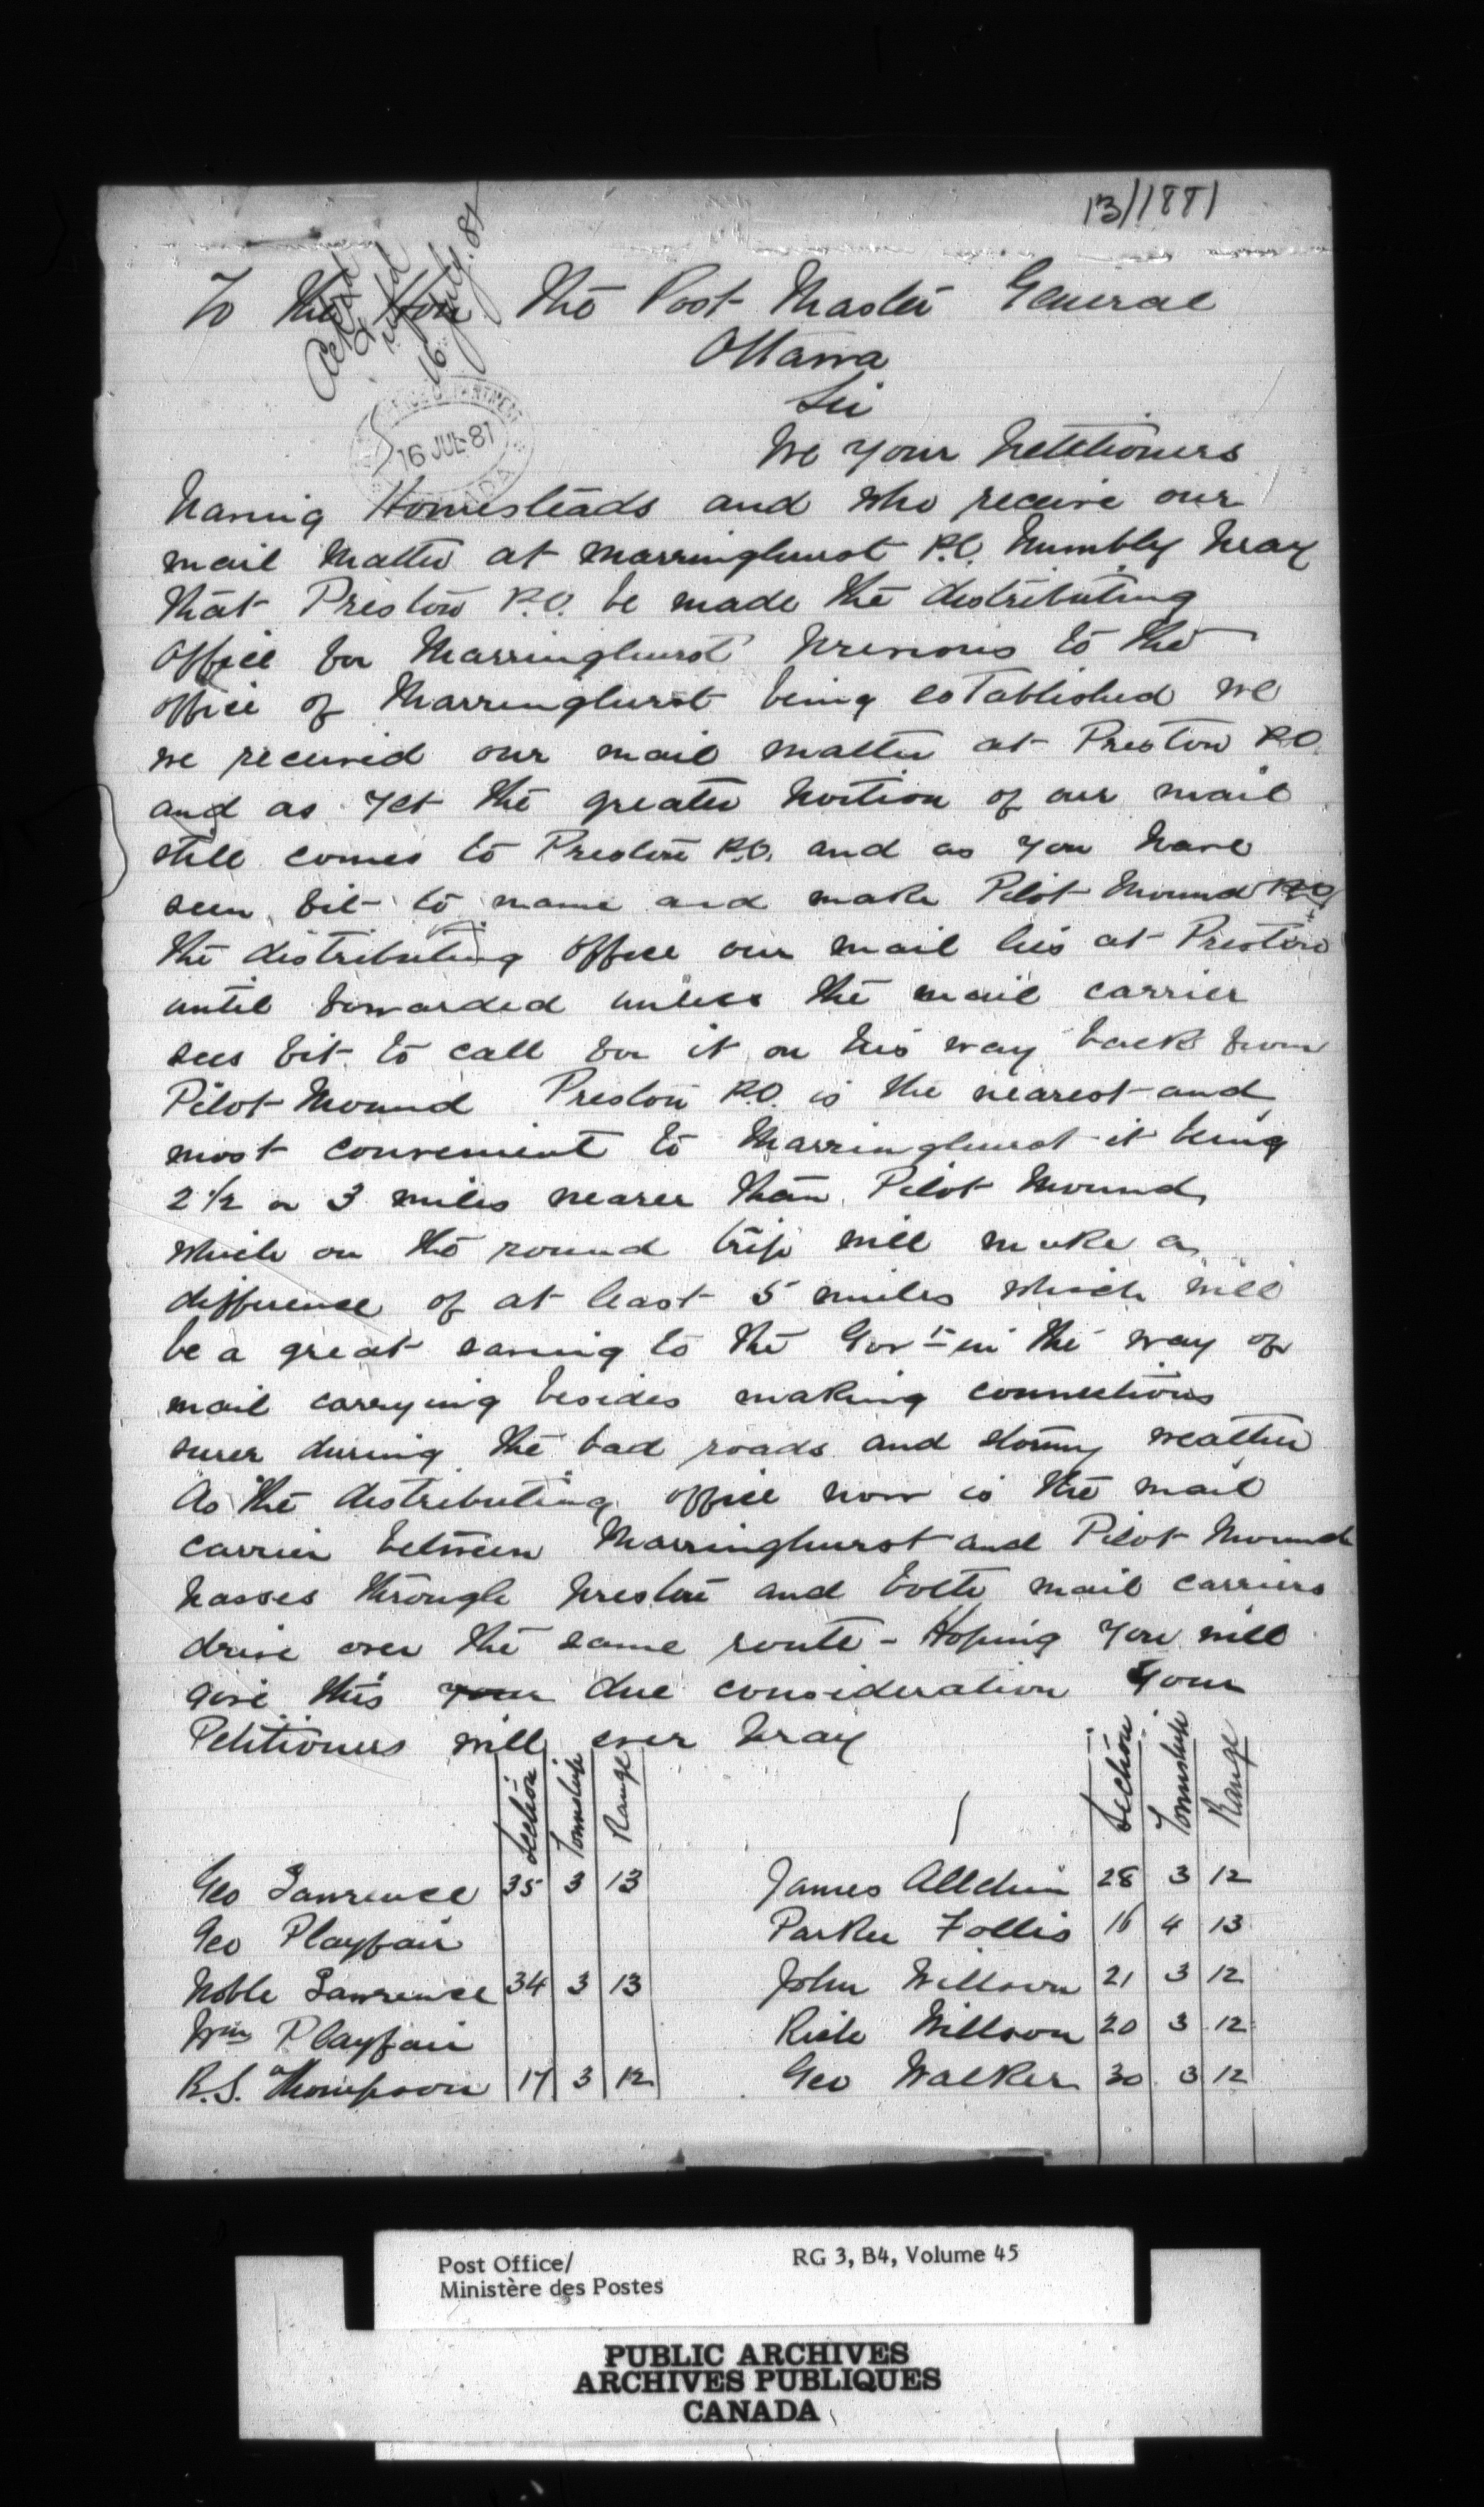 13/1881
Ackd
16 July. 81
To the Hon The Post Master General
Ottawa
Sir
16 JUL 81
We your Petitioners
having Homesteads and who receive our
mail matter at Marringhurst P.O. humbly pray
that Preston P.O. be made the distributing
office for Marringhurst previous to the
office of Marringhurst being established we
we received our mail matter at Preston P.O.
and as yet the greater portion of our mail
still comes to Preston P.O. and as you have
seen fit to name and make Pilot Mound P.O.
the distributing office our mail lies at Preston
until forwarded unless the mail carrier
sees fit to call for it on his way back from
Pilot Mound Preston P.O. is the nearest and
most convenient to Marringhurst it being
2 1/2 or 3 miles nearer than Pilot Mound
which on the round trip will make a
difference of at least 5 miles which will
be a great saving to the Govt in the way of
mail carrying besides making connections
surer during the bad roads and stormy weather
As the distributing office now is the mail
carrier between Marringhurst and Pilot Mound
passes through Preston and both mail carriers
drive over the same route - Hoping you will
give this your due consideration Your
Petitioners will ever pray
Section Township Range
Section Township Range
Geo Lawrence 35 3 13
James Alldin 28 3 12
Geo Playfair
Parker Follis 16 4 13
Noble Lawrence 34 3 13
John Willson 21 3 12
Wm Playfair
Willson 20 3 12
R.S. Thompson 17 3 12
Geo Walker 30 3 12
Post Office/
Ministère des Postes
RG 3, B4, Volume 45
PUBLIC ARCHIVES
ARCHIVES PUBLIQUES
CANADA